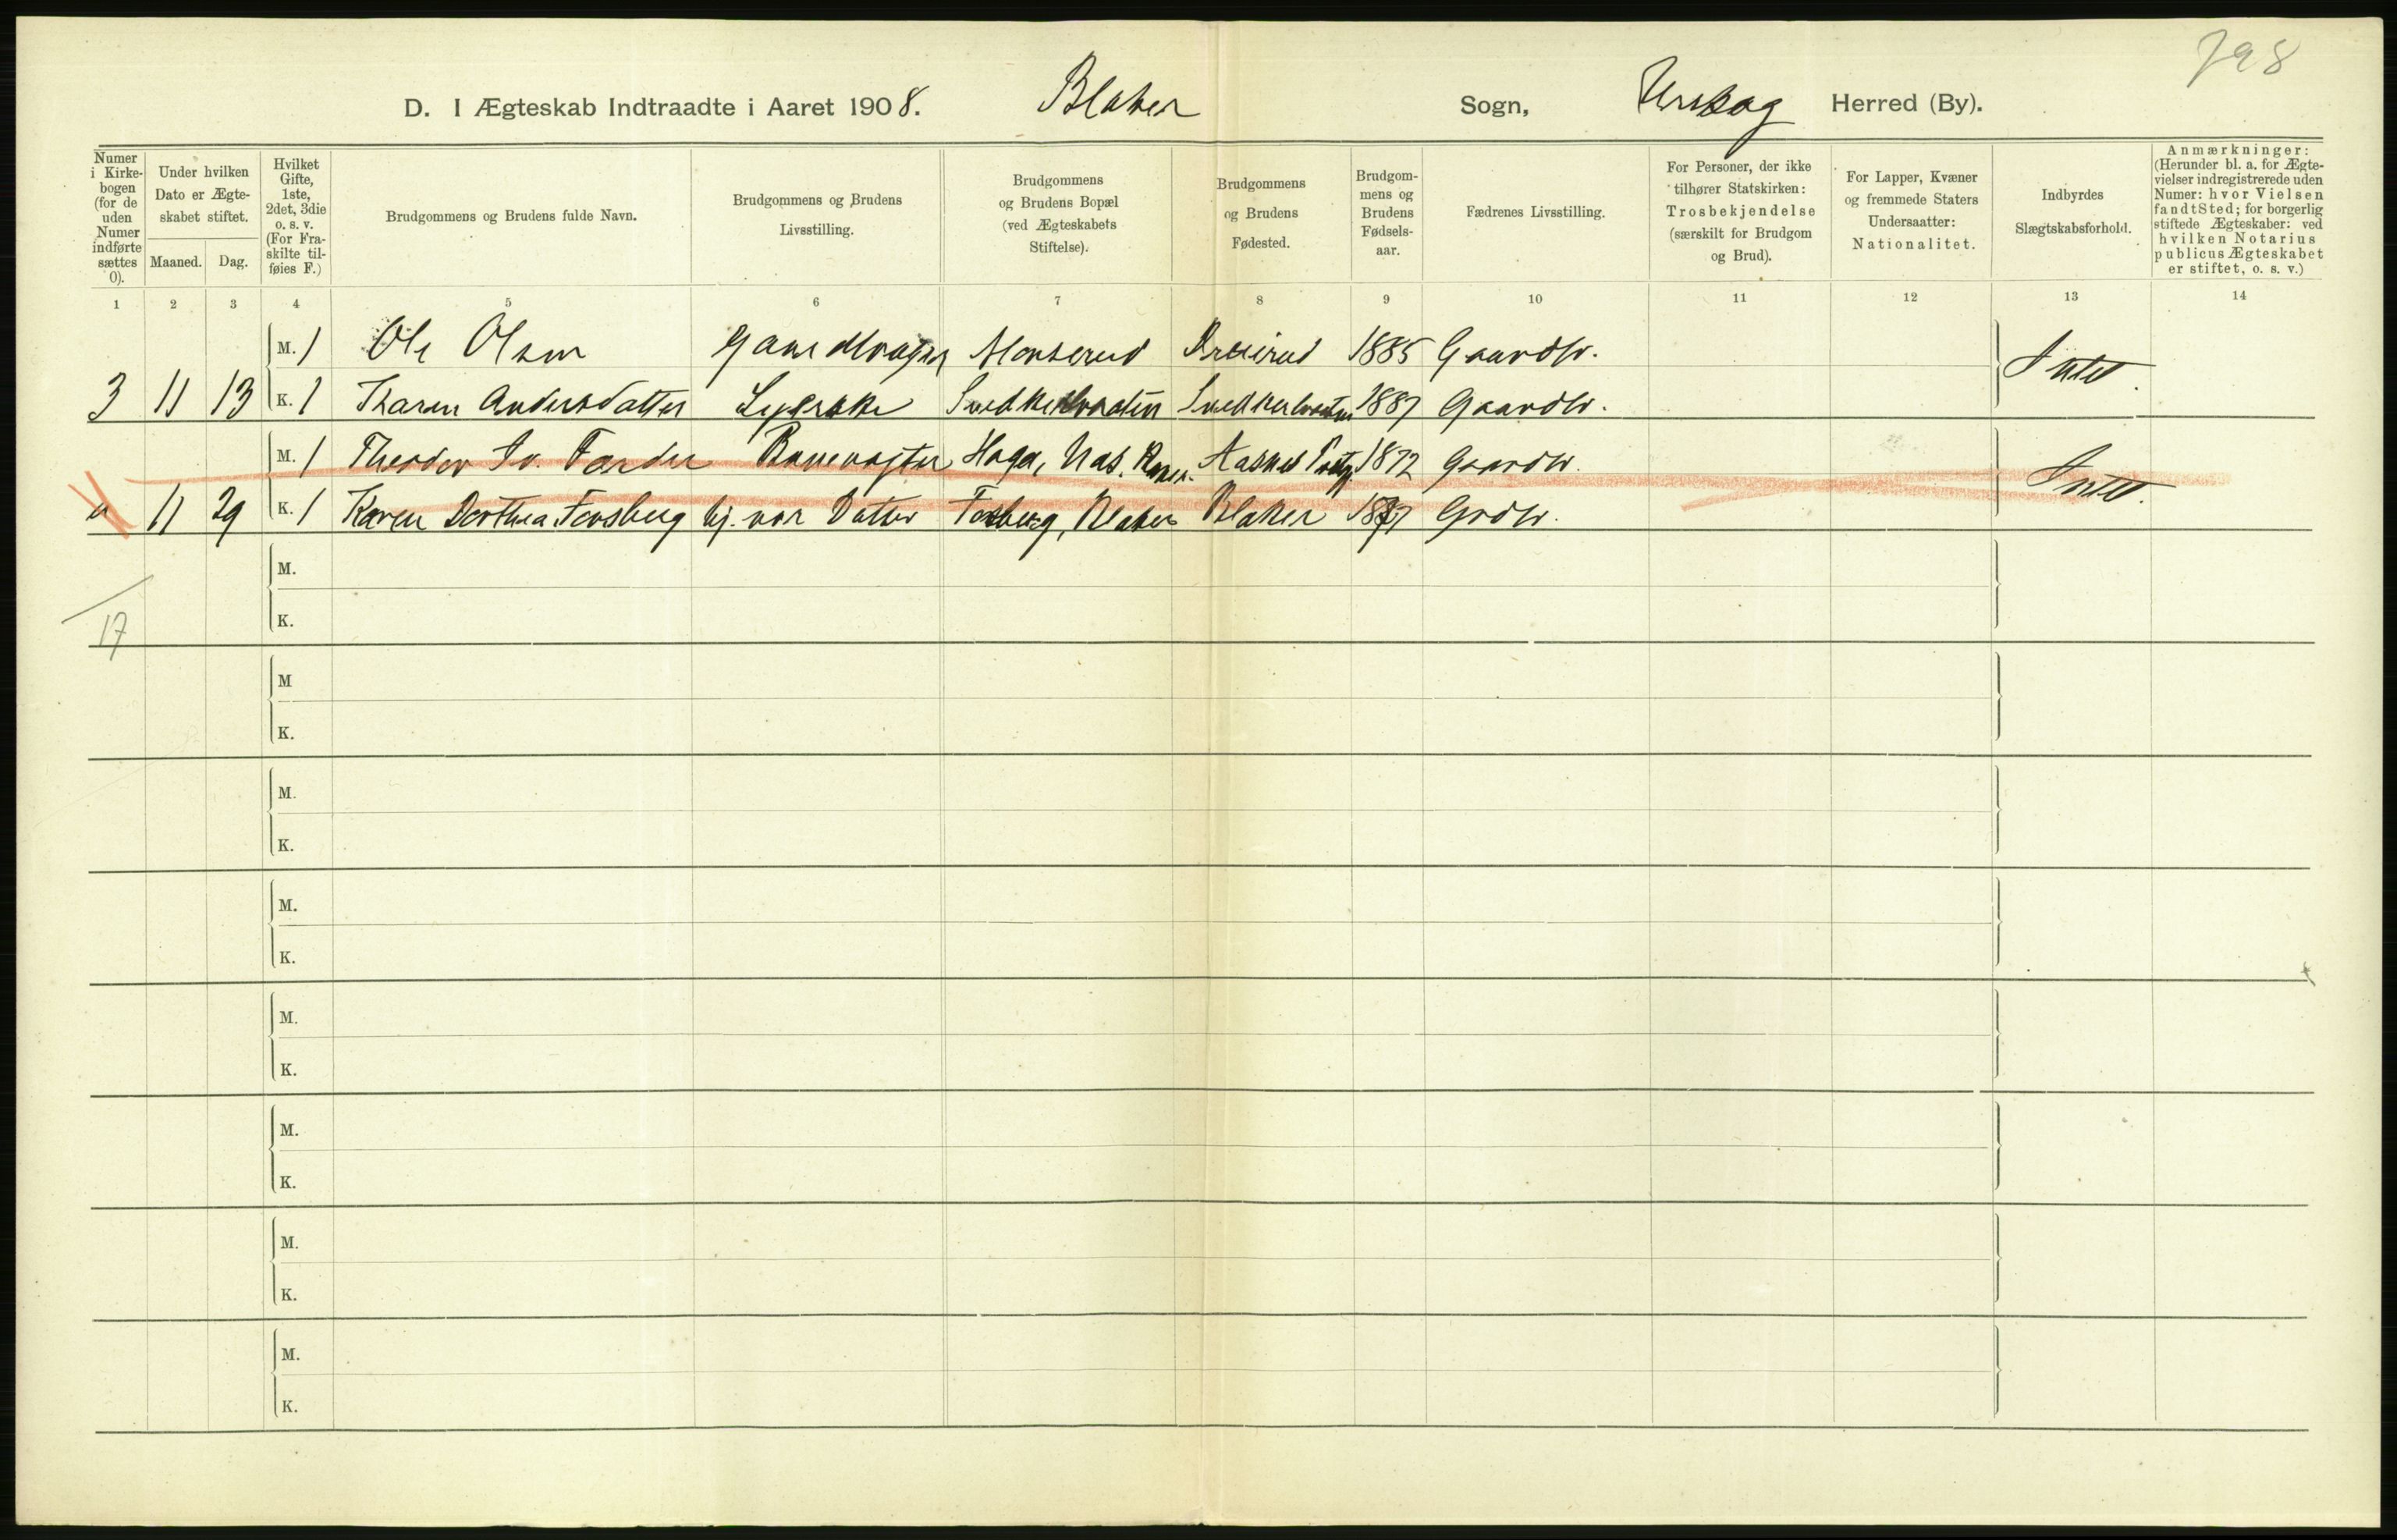 798
D. I Ægteskab Indtraadte i Aaret 1908. Blaker Sogn, Urskog Herred (By).
Numer i Kirkebogen (for de uden Numer indførte sættes 0).
Under hvilken Dato er Ægteskabet stiftet.
Maaned. Dag.
Hvilket Gifte, 1ste, 2det, 3die o. s. v. (For Fraskilte tilføies F.)
Brudgommens og Brudens fulde Navn.
Brudgommens og Brudens Livsstilling.
Brudgommens og Brudens Bopæl (ved Ægteskabets Stiftelse).
Brudgommens og Brudens Fødested.
Brudgommens og Brudens Fødselsaar.
Fædrenes Livsstilling.
For Personer, der ikke tilhører Statskirken: Trosbekjendelse (særskilt for Brudgom og Brud).
For Lapper, Kvæner og fremmede Staters Undersaatter: Nationalitet.
Indbyrdes Slægtskabsforhold.
Anmærkninger: (Herunder bl. a. for Ægtevielser indregistrerede uden Numer: hvor Vielsen fandt Sted; for borgerlig stiftede Ægteskaber: ved hvilken Notarius publicus Ægteskabet er stiftet, o. s. v.)
1 2 3 4 5 6 7 8 9 10 11 12 13 14
M. 1 Ole Olsen 1885 Gaardbr. Intet.
3 11 13 K. 1 Karen Andersdatter Syerske 1887 Gaardbr.
M. 1 Theodor Banevogter Haga, Nas, Aasnes 1872 Gaardbr. Intet.
4 11 29 K. 1 Karen Dorthea Forsberg hj. vær. Datter Fosberg, Blaker Blaker 1877 Grdbr.
M.
K.
17
M
K.
M.
K.
M.
K.
M.
K.
M.
K.
M.
K.
M.
K.